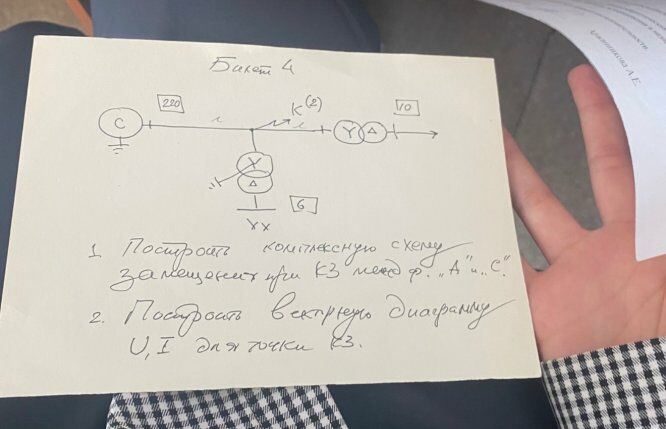 Билет 4
220
K(2)
10
С
Y Δ
Y
Δ
6
XX
1. Построить комплексную схему
замещения при КЗ между ф. "А" и "С".
2. Построить векторную диаграмму
U, I для точки КЗ.